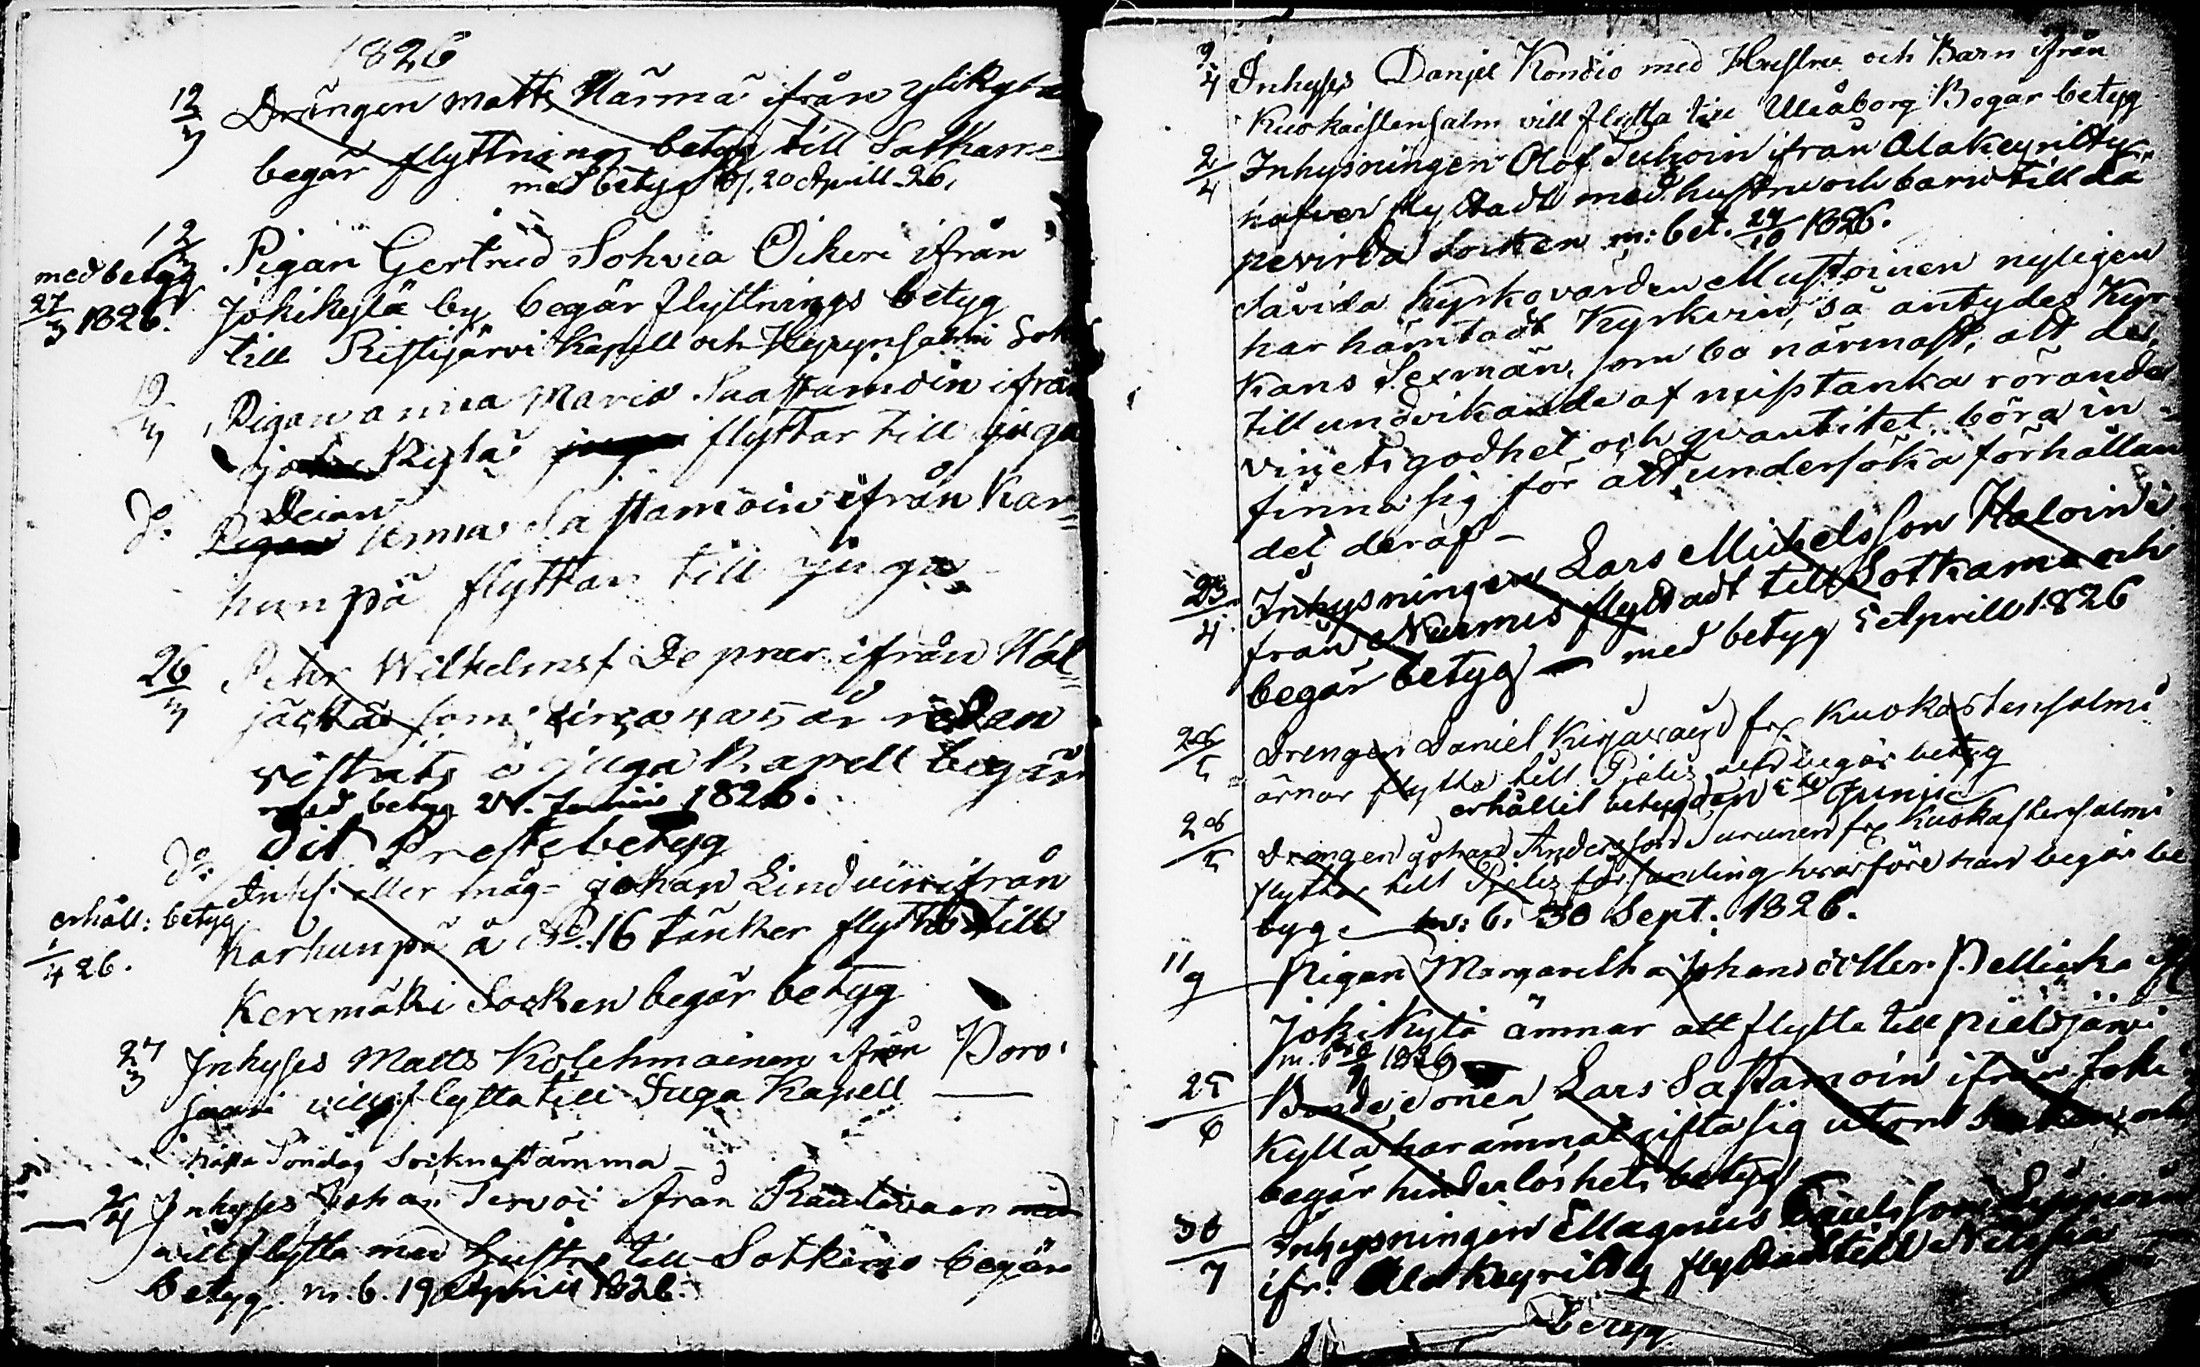 1826
12/3 Drängen Matts Härmä ifrån ylikylä
begär flyttnings betyg till Sotkamo
med betyg d. 20 Aprill 26.
12/3 Pigan Gertrud Sohvia Oikari ifrån
med betyg
27/3 1826.
Jokikylä by begär flyttnings betyg
till Ristijärvi Kapell och Hyrynsalmi Sok
12/3 Pigan anna Maria Saastamoin ifrån
Kylä flyttar till juga
do Deian
Pigan Anna Sastamoin ifrån Kar=
hunpä flyttar till juga
26/3 Petr Wilhelmsf De prær ifrån Wal=
jäckä som circa 4 a 5 år redan
vistats i juga Kapell begär
med betyg 24. Junii 1826.
dit Prestebetyg
do Inhs. eller måg Johan Lindvin ifrån
erhåll: betyg
1/4 26.
Karhunpä å No 16 tänker flytta till
Keremäki Socken begär betyg
27/3 Inhyses Matts Kolehmainen ifrån Poro
saari vill flytta till Juga Kapell
nästa Söndag Socknestämma
2/4 Inhyses Johan Tervoi ifrån Rautavaara med
vill flytta med hustru till Sotkamo begär
betyg m. b. 19 Aprill 1826.
2/4 Inhyses Daniel Kondio med Hustru och Barn ifrån
Kuokaistensalm vill flytta till Uleåborg Begär betyg
2/4 Inhysningen Olof Tuhoin ifrån Alakeyritty
hafver flyttadt med hustru och barn till La
pevirda Socken m: bet. 24/10 1826.
Såvida Kyrkovärden Mustoinen nyligen
har hämtadt Kyrkvin, så antydes Kyr
kans Sexmän, som bo närmast, att de,
till undvikande af misstanka rörande
vinets godhet och qvantitet böra in=
finna sig för att undersöka förhållan
det deraf –
23/4 Inhysningen Lars Michelsson Haloin i
från Nurmis flyttadt till Sotkamo och
begär betyg — med betyg 5 Aprill 1826
28/5 Drengen Daniel fr Kuokastensalmi
ärnar flytta till Pielis och begär betyg
erhållit betyg den Junii
28/5 Drengen Johan Andersson Turunen fr Kuokastensalmi
flyttar till Pielis församling hvarföre han begär be
tyg. m: b. 30 Sept. 1826.
11/9 Pigan Margaretha Johansdotter Pellicka
Jokikylä ämnar att flytta till Pielisjärvi
m. b. 1826
25/6 Bonde Sonen Lars Sastamoin ifrån Joki
kylla har ämnat gifta sig utom Socken och
begär hinderlöshets betyg
30/7 Inhysningen Magnus Paulsson
ifr. Alakeyritty flyttadt till Nilssia
Betyg